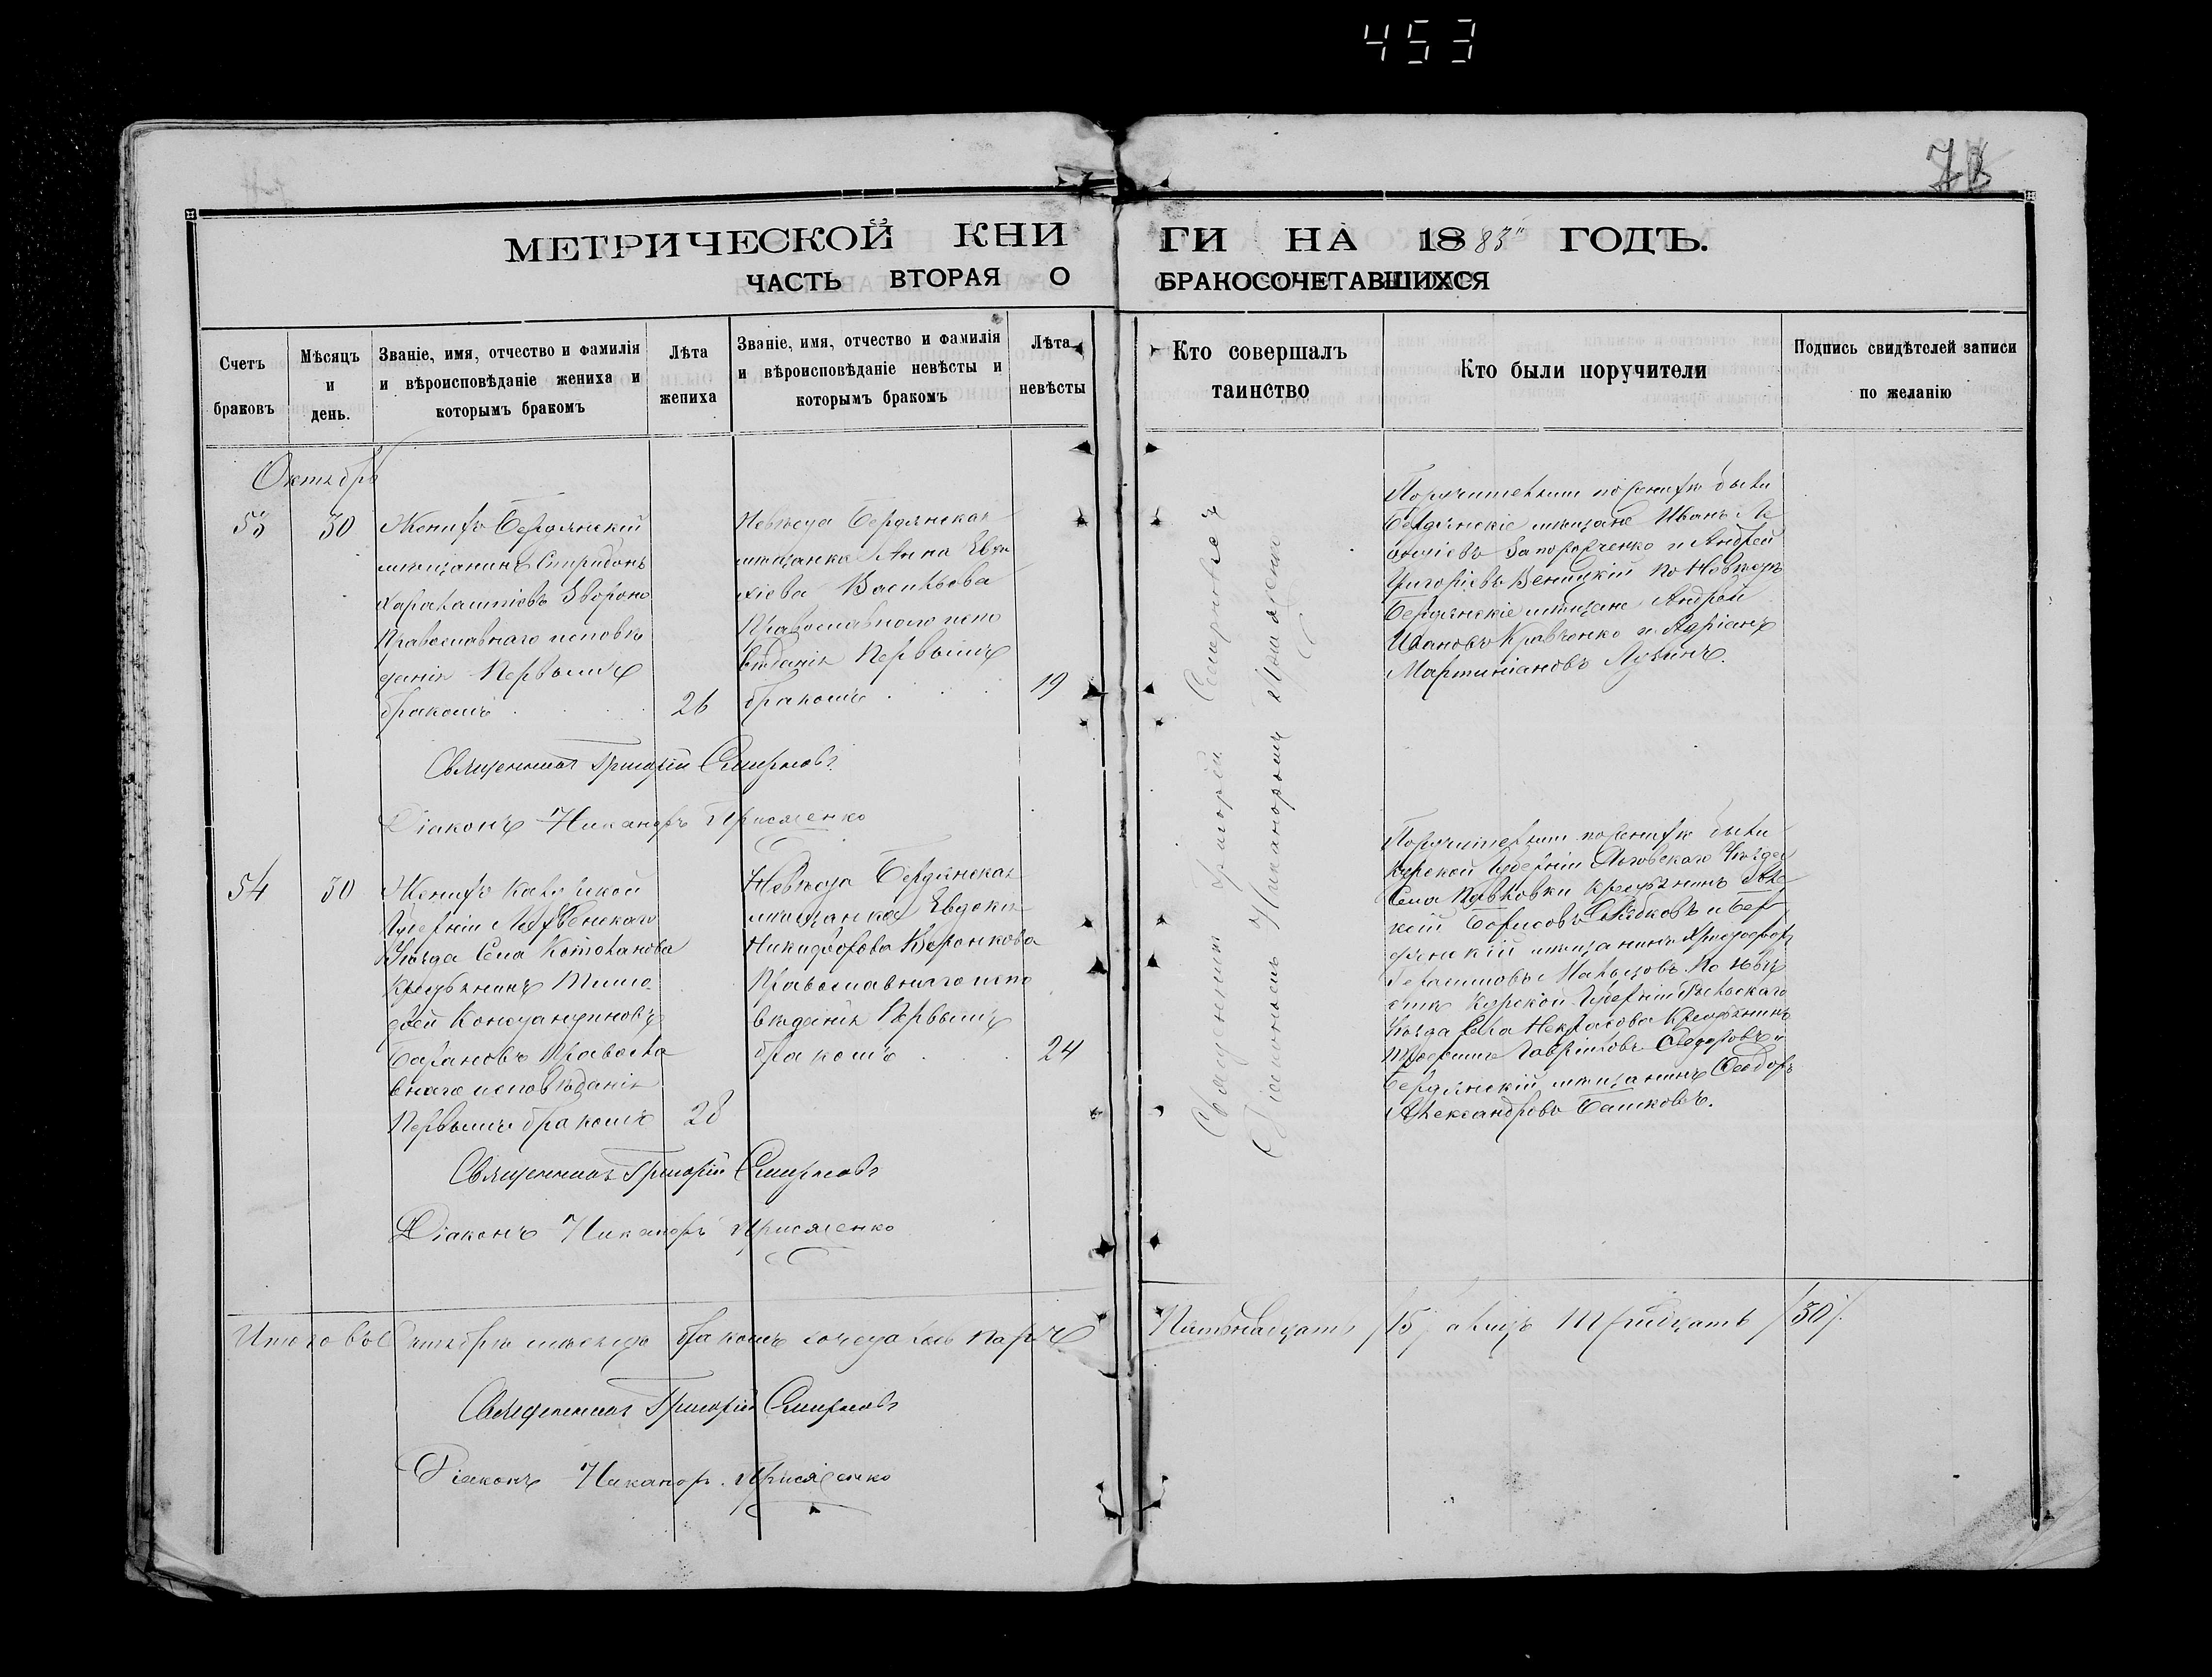 453
МЕТРИЧЕСКОЙ КНИГИ НА 1883 ГОДЪ.
ЧАСТЬ ВТОРАЯ О БРАКОСОЧЕТАВШИХСЯ
Счетъ браковъ
Мѣсяцъ и день.
Званіе, имя, отчество и фамилія
и вѣроисповѣданіе жениха и
которымъ бракомъ
Лѣта жениха
Званіе, имя, отчество и фамилія
и вѣроисповѣданіе невѣсты и
которымъ бракомъ
Лѣта невѣсты
Кто совершалъ
таинство
Кто были поручители
Подпись свидѣтелей записи
по желанію
Октябрь
53
30
Женихъ Бердянскій
мѣщанинъ Спиридонъ
Харалампіевъ
Православнаго исповѣ
данія Первымъ
бракомъ
26
Невѣста Бердянская
мѣщанка Анна
Васильева
Православнаго испо
вѣданія Первымъ
бракомъ
19
Священникъ Григорій Смирновъ
Діаконъ Никаноръ Присяженко
Поручителями по женихѣ были
Бердянскіе мѣщане Иванъ
Запорожченко и Андрей
Григорьевъ по Невѣстѣ
Бердянскіе мѣщане Андрей
Ивановъ Кравченко и Адріанъ
Мартиніановъ
54
30
Женихъ Калужской
Губерніи
Уѣзда Села
Крестьянинъ Тимо
фей Константиновъ
Барановъ Правосла
внаго исповѣданія
Первымъ бракомъ
28
Невѣста Бердянская
мѣщанка Евдокія
Никифорова Воронкова
Православнаго испо
вѣданія Первымъ
бракомъ
24
Священникъ Григорій Смирновъ
Діаконъ Никаноръ Присяженко
Священникъ Григорій Смирновъ съ
Діакономъ Никаноромъ Присяженко
Поручителями по женихѣ были
Курской Губерніи Льговскаго Уѣзда
Села крестьянинъ
Борисовъ и Бер
дянскій мѣщанинъ Христофоръ
Герасимовъ По невѣ
стѣ Курской Губерніи Рыльскаго
Уѣзда Села Некрасова Крестьянинъ
Трофимъ Гавріиловъ Ѳедоровъ и
Бердянскій мѣщанинъ Ѳеодоръ
Александровъ Башковъ.
Итого въ Октябрѣ мѣсяцѣ бракомъ сочеталось паръ Пятнадцать /15/ а лицъ Тридцать /30/.
Священникъ Григорій Смирновъ
Діаконъ Никаноръ Присяженко